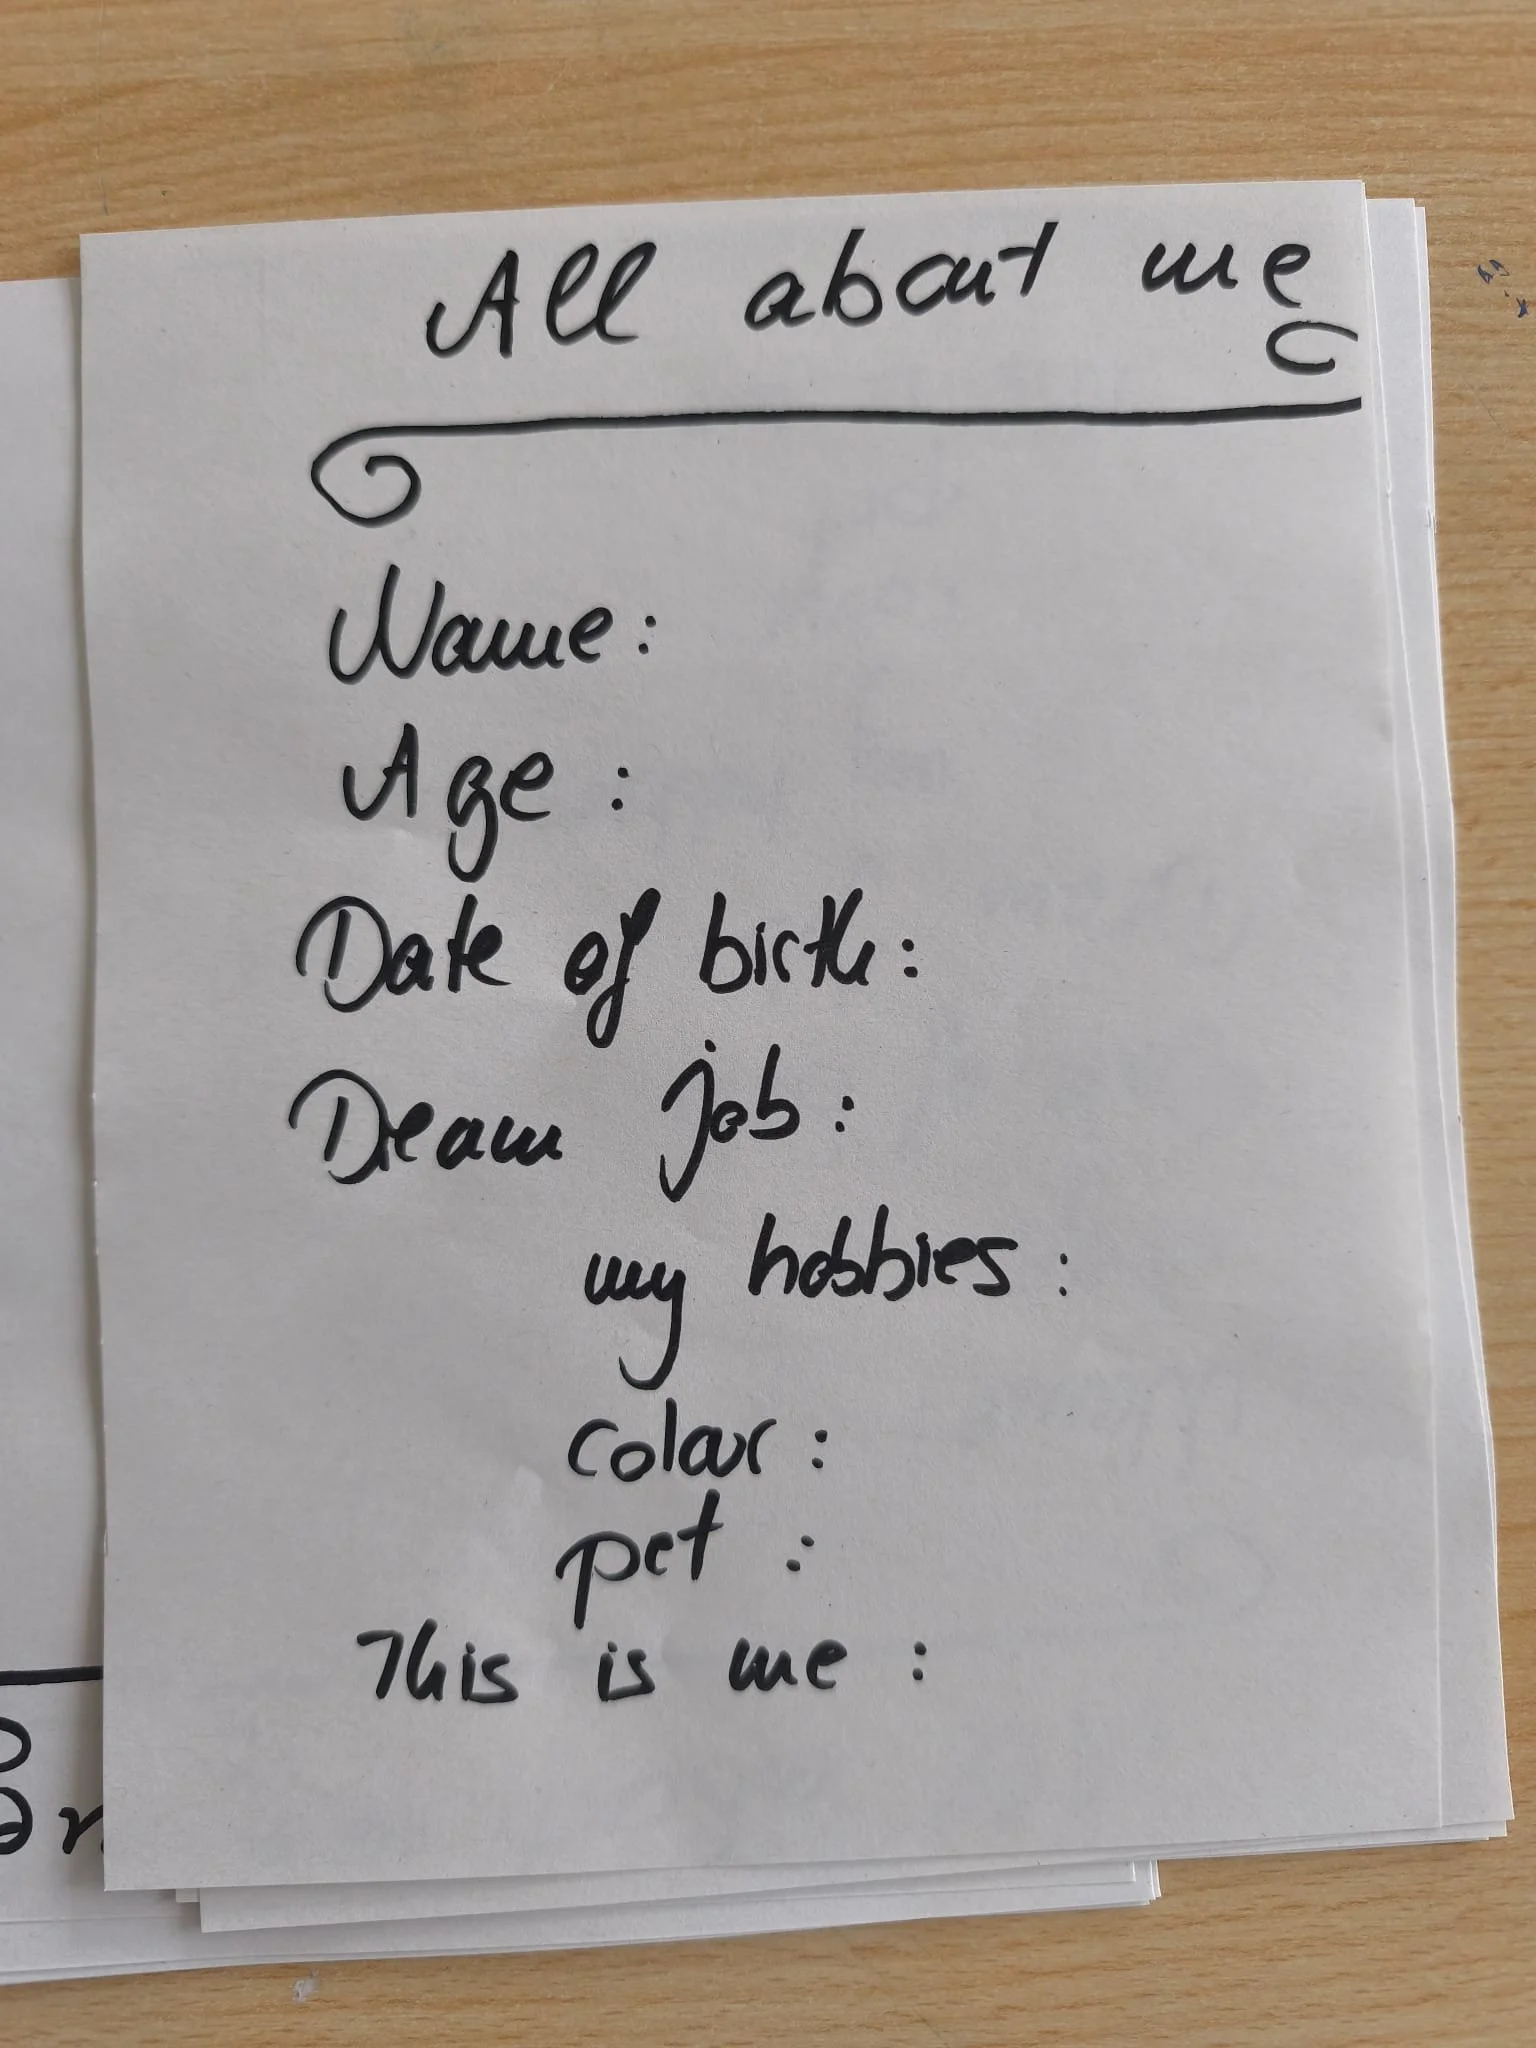 All about me
Name:
Age:
Date of birth:
Dream job:
my hobbies:
colour:
pet:
This is me: